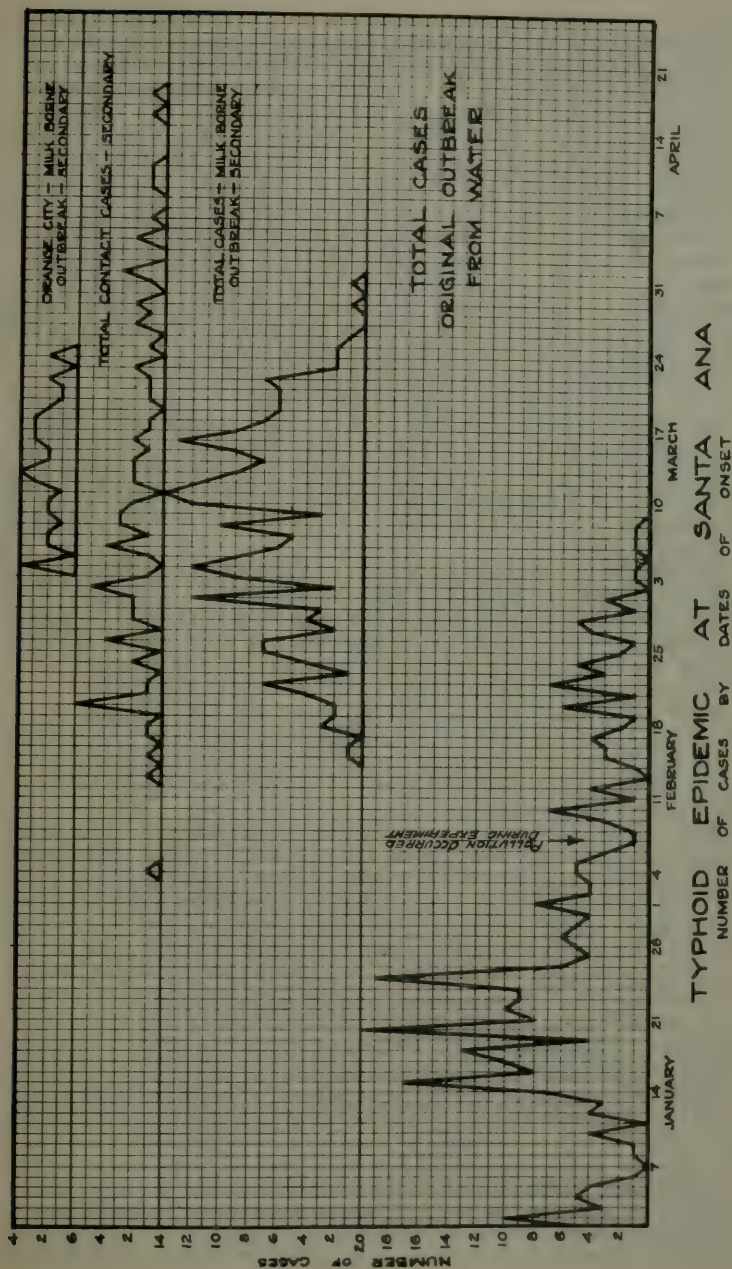 ORANGE CITY – MILK BORNE
OUTBREAK – SECONDARY
TOTAL CONTACT CASES – SECONDARY
TOTAL CASES – MILK BORNE
OUTBREAK – SECONDARY
TOTAL CASES
ORIGINAL OUTBREAK
FROM WATER
POLLUTION OCCURRED
DURING EXPERIMENT
NUMBER OF CASES
4
2
14
12
10
8
6
4
2
20
18
16
14
12
10
8
6
4
2
7 14 21 28 1 4 11 18 25 3 10 17 24 31 7 14 21
JANUARY FEBRUARY MARCH APRIL
TYPHOID EPIDEMIC AT SANTA ANA
NUMBER OF CASES BY DATES OF ONSET